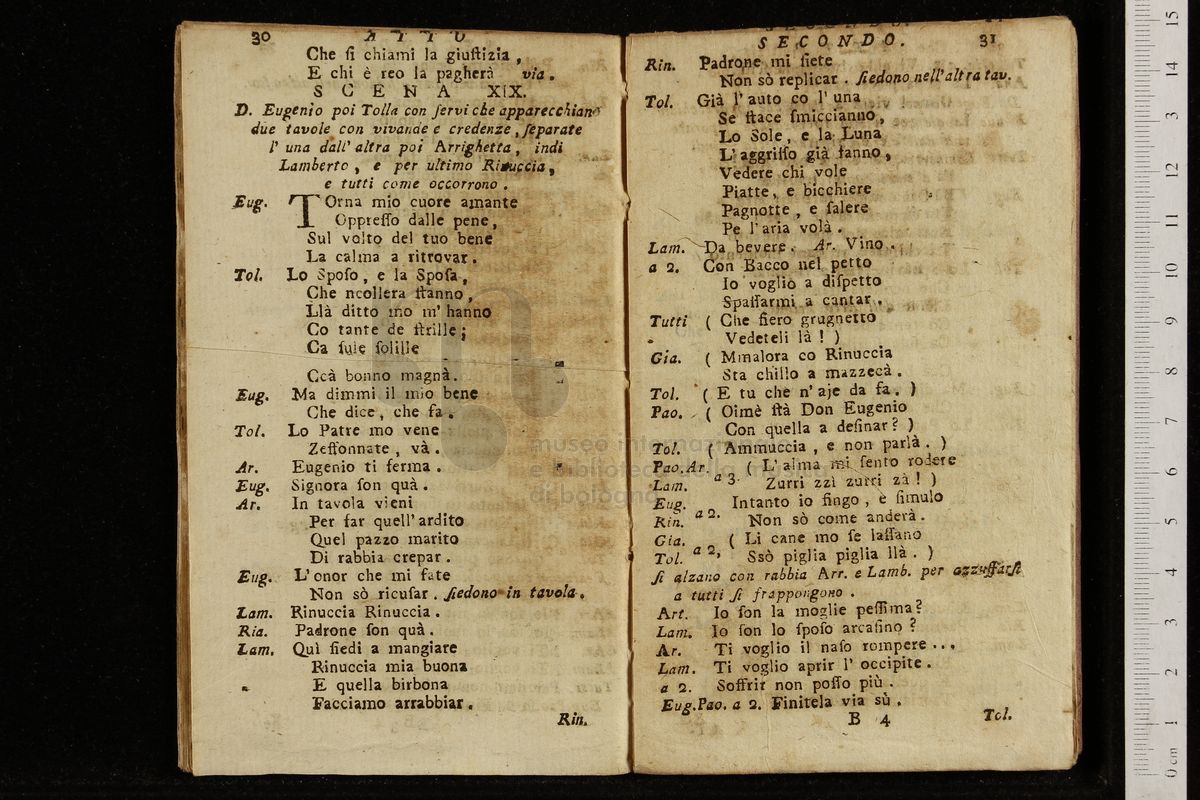 30 ATTO
Che ſi chiami la giuſtizia,
E chi è reo la pagherà via.
SCENA XIX.
D. Eugenio poi Tolla con ſervi che apparecchiano
due tavole con vivande e credenze, ſeparate
l' una dall' altra poi Arrighetta, indi
Lamberto, e per ultimo Rinuccia,
e tutti come occorrono.
Eug. TOrna mio cuore amante
Oppreſſo dalle pene,
Sul volto del tuo bene
La calma a ritrovar.
Tol. Lo Spoſo, e la Spoſa,
Che ncollera ſtanno,
Llà ditto mo m' hanno
Co tante de ſtrille;
Ca ſule ſolille
Ccà bonno magnà.
Eug. Ma dimmi il mio bene
Che dice, che fa.
Tol. Lo Patre mo vene
Zeffonnate, và.
Ar. Eugenio ti ferma.
Eug. Signora ſon quà.
Ar. In tavola vieni
Per far quell' ardito
Quel pazzo marito
Di rabbia crepar.
Eug. L' onor che mi fate
Non sò ricuſar. ſiedono in tavola.
Lam. Rinuccia Rinuccia.
Ria. Padrone ſon quà.
Lam. Quì ſiedi a mangiare
Rinuccia mia buona
E quella birbona
Facciamo arrabbiar.
Rin.
SECONDO. 31
Rin. Padrone mi ſiete
Non sò replicar. ſiedono nell'altra tav.
Tol. Già l' auto co l' una
Se ſtace ſmiccianno,
Lo Sole, e la Luna
L' aggriſſo già fanno,
Vedere chi vole
Piatte, e bicchiere
Pagnotte, e ſalere
Pe l' aria volà.
Lam. Da bevere. Ar. Vino.
a 2. Con Bacco nel petto
Io voglio a diſpetto
Spaſſarmi a cantar.
Tutti ( Che fiero grugnetto
Vedeteli là! )
Gia. ( Mmalora co Rinuccia
Sta chillo a mazzecà.
Tol. ( E tu che n' aje da fa. )
Pao. ( Oimè ſtà Don Eugenio
Con quella a deſinar? )
Tol. ( Ammuccia, e non parlà. )
Pao.Ar. ( L' alma mi ſento rodere
Lam. a 3. Zurri zzì zurri zà! )
Eug. Intanto io fingo, e ſimulo
Rin. a 2. Non sò come anderà.
Gia. ( Li cane mo ſe laſſano
Tol. a 2, Ssò piglia piglia llà. )
ſi alzano con rabbia Arr. e Lamb. per azzuffarſi
a tutti ſi frappongono.
Art. Io ſon la moglie peſſima?
Lam. Io ſon lo ſpoſo arcaſino?
Ar. Ti voglio il naſo rompere...
Lam. Ti voglio aprir l' occipite.
a 2. Soffrir non poſſo più.
Eug.Pao. a 2. Finitela via sù.
B 4 Tol.
museo internazionale
e biblioteca della musica
di bologna
15
14
13
12
11
10
9
8
7
6
5
4
3
2
1
0 cm